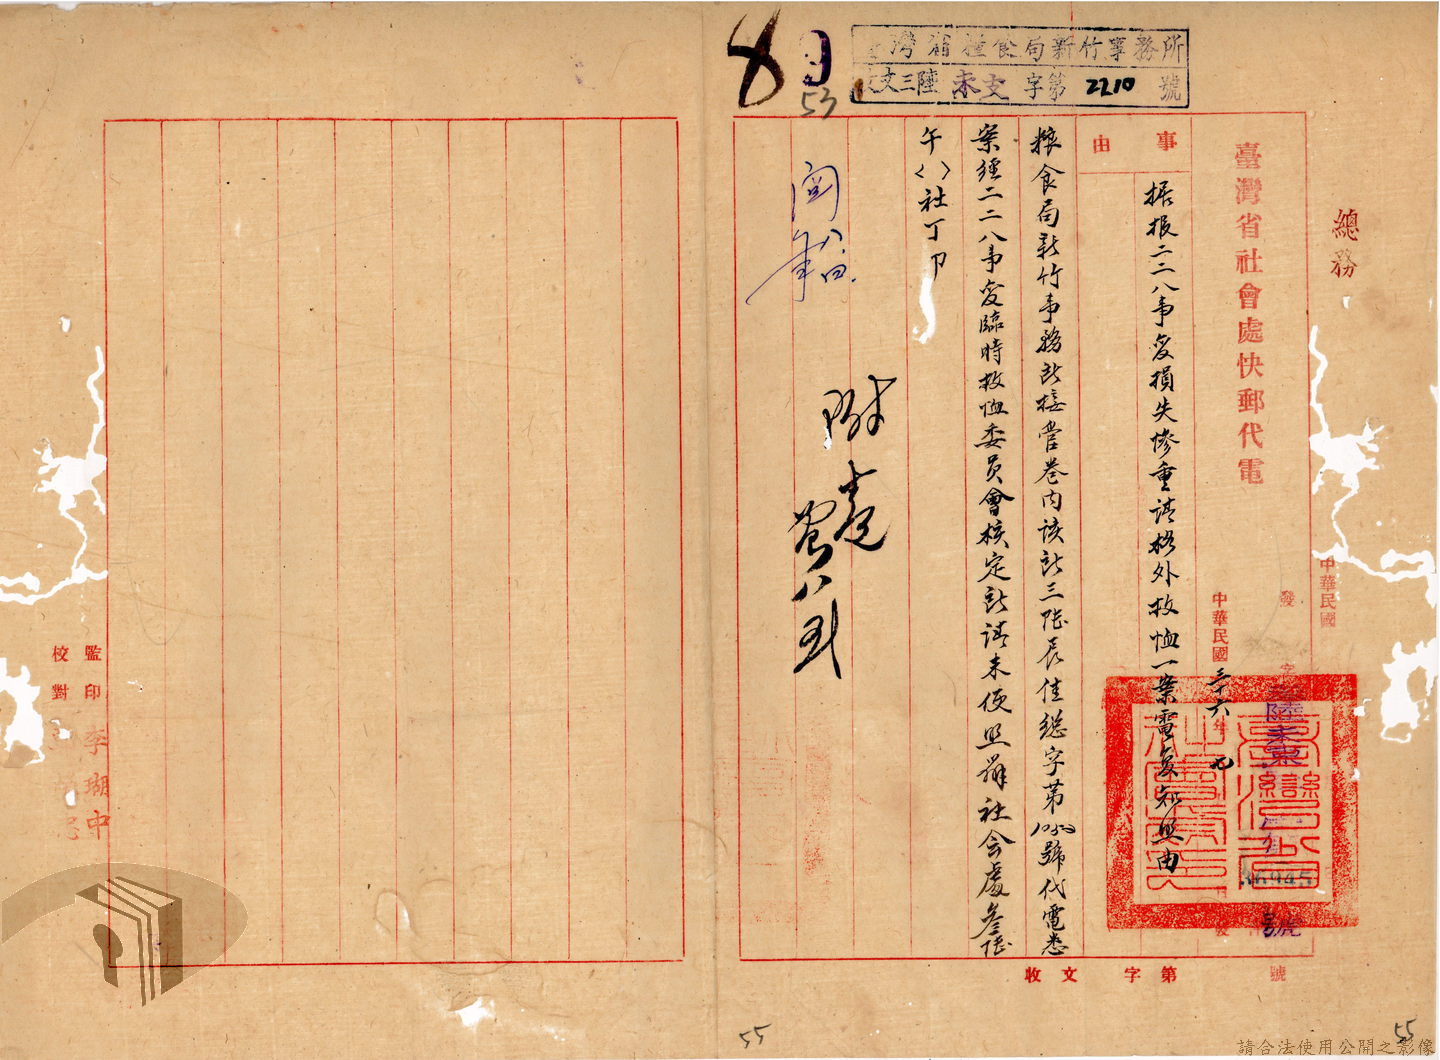 總務
臺灣省糧食局新竹事務所
收文三陸 未支 字第 2210 號
53
臺灣省社會處快郵代電
中華民國
發
字
陸
36945
號
中華民國三十六年
事由
据报二二八事変損失慘重請格外救恤一案電复知照由
粮食局新竹事務所接管卷内该所三陸辰佳總字第1050號代電悉
案經二二八事变臨時救恤委员會核定所請未便照辦社会處叁陸
午社丁卯
閱
附卷
收文 字第 號
監印 李瑚中
校對
55
55
請合法使用公開之影像